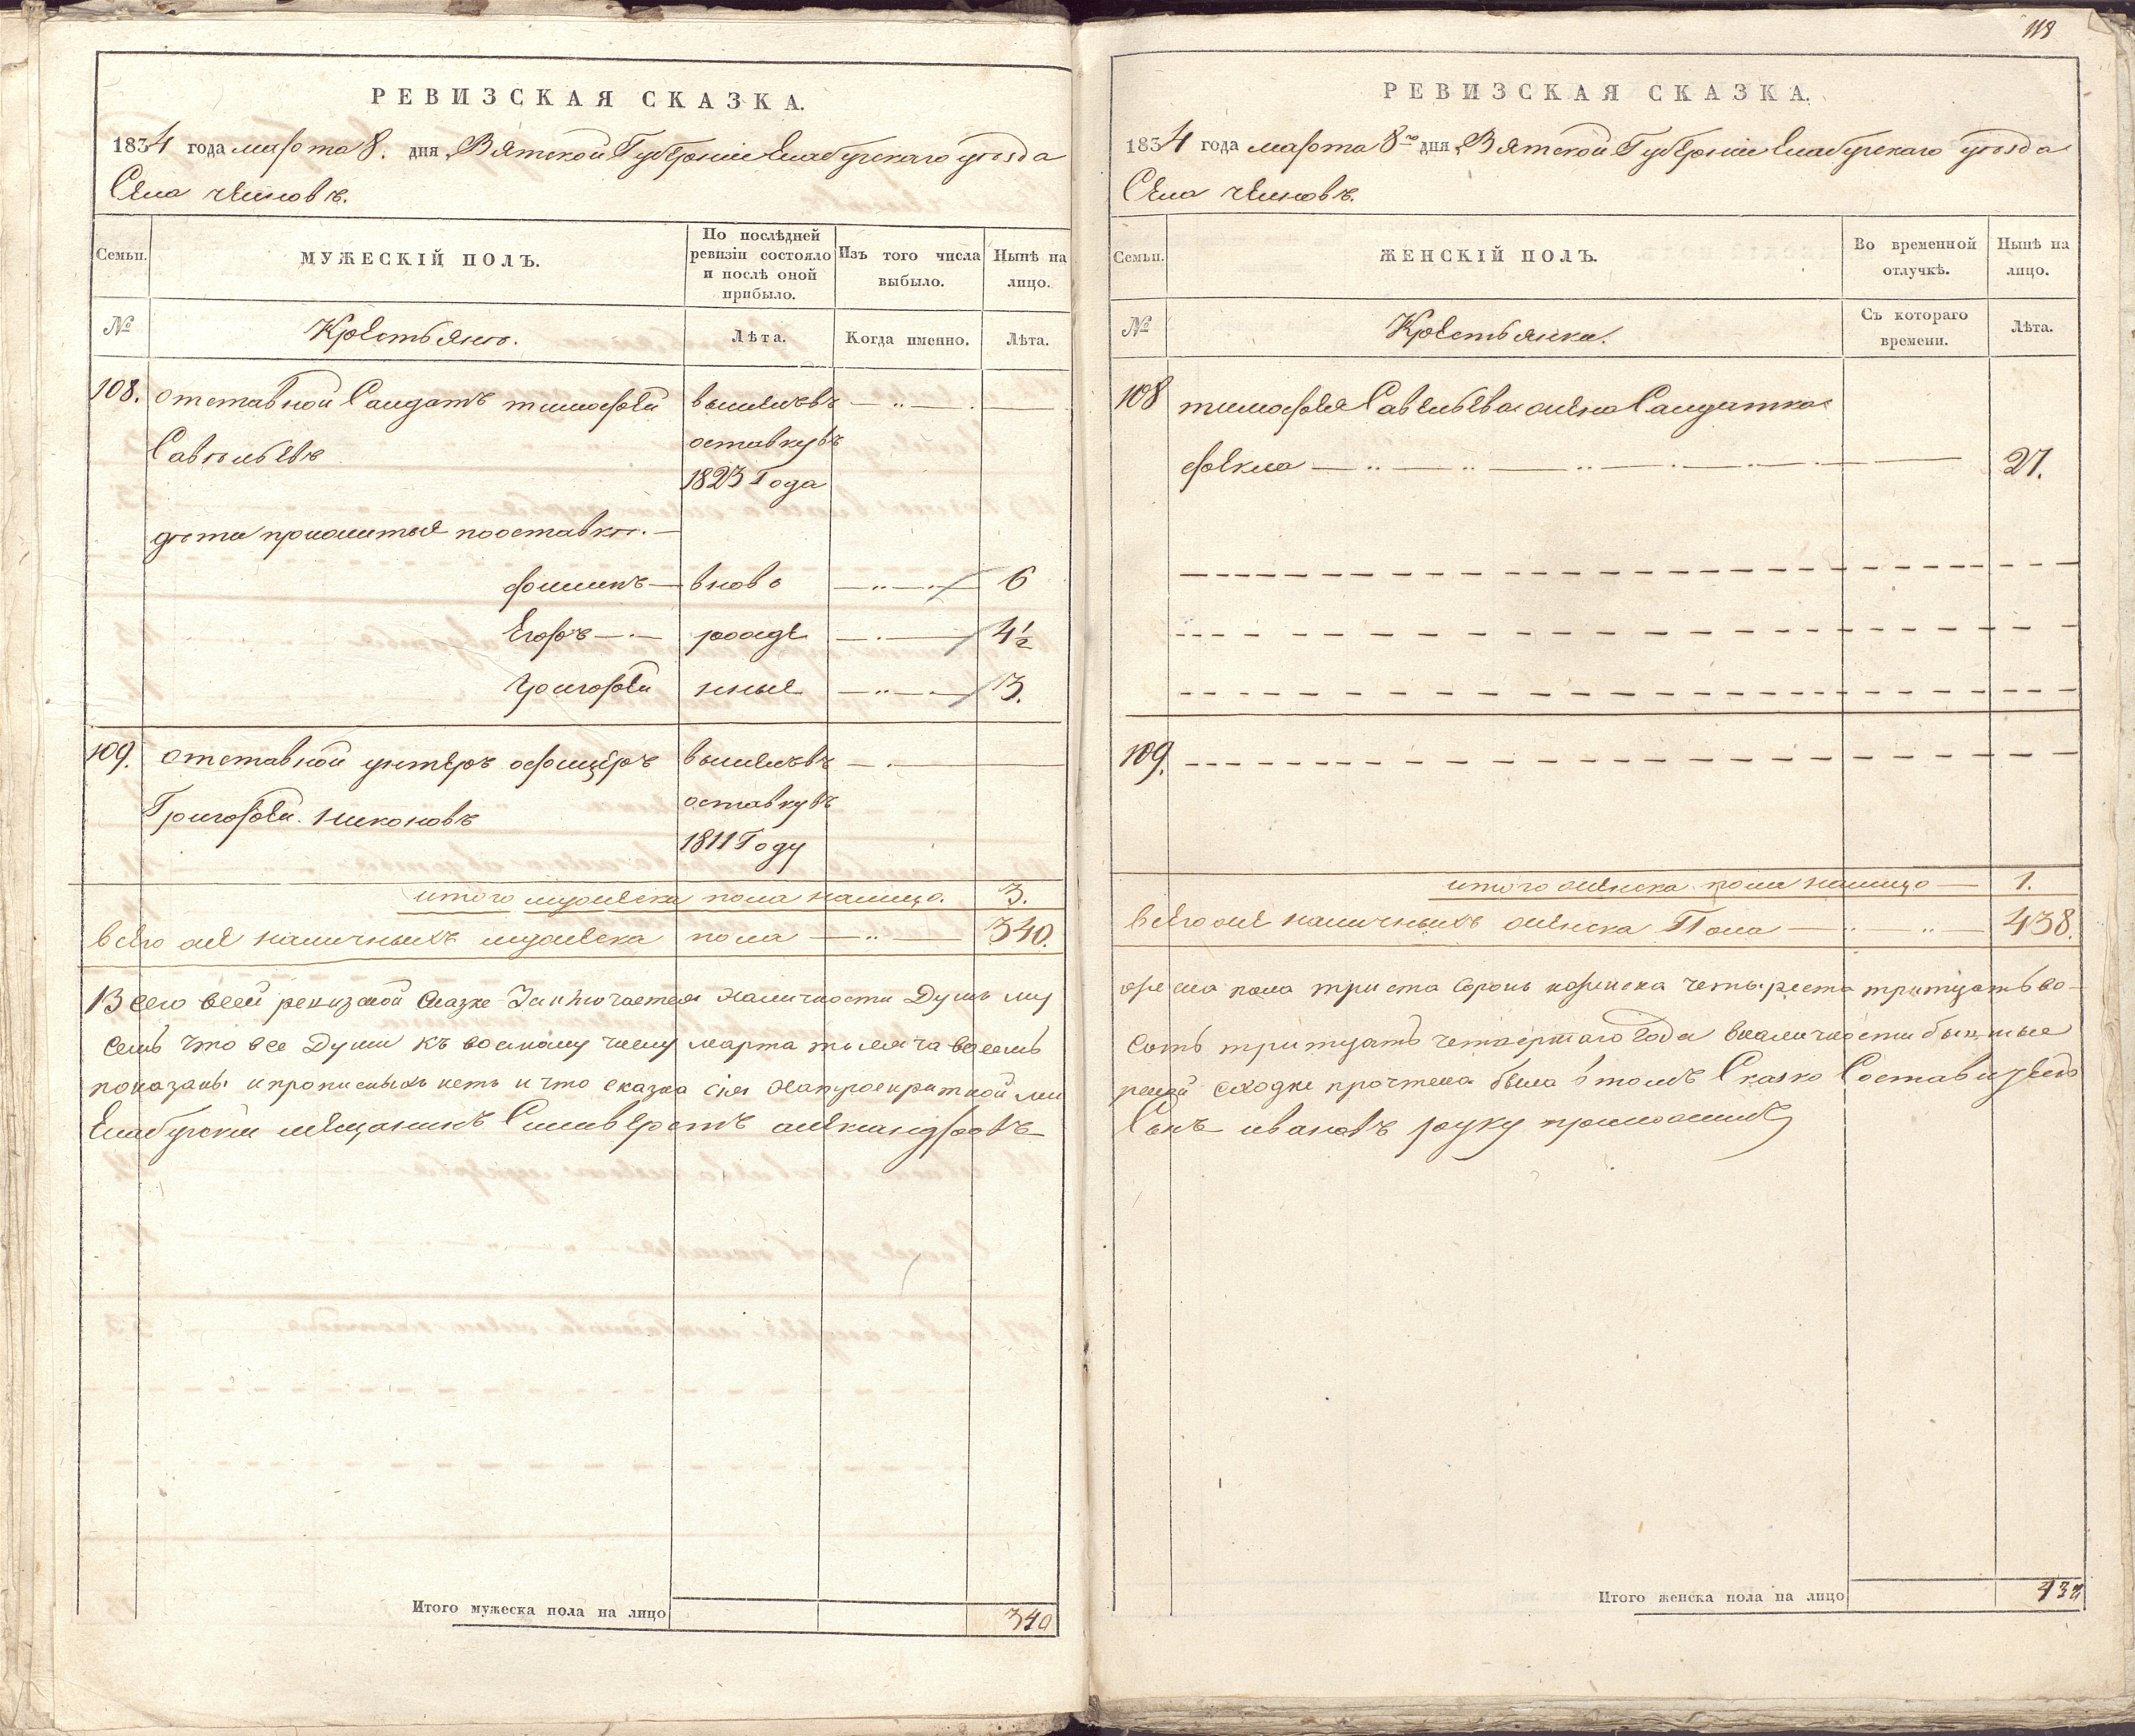 РЕВИЗСКАЯ СКАЗКА.
1834 года марта 8. дня, Вятской Губерніи Елабугскаго уѣзда
Села челновъ.
Семьи. МУЖЕСКІЙ ПОЛЪ. По послѣдней ревизіи состояло и послѣ оной прибыло. Изъ того числа выбыло. Нынѣ на лицо.
№ Крестьяне. Лѣта. Когда именно. Лѣта.
108. отставной Салдатъ тимофей вышелъвъ
Савельевъ оставкувъ
1823 Года
дети прижитые пооставке.
филипъ вново 6
Егоръ рожде 4½
Григорей нные 3.
109. отставной унтеръ офицеръ вышелъвъ
Григорей никоновъ оставкувъ
1811 Году
итого мужеска пола налицо. 3.
всего же наличныхъ мужеска пола 340.
Всего всей ревизской Сказке Заключается Наличности Душъ му
семъ что все Души къ восмому числу марта тысяча восемь
показаны и прописныхъ нетъ и что сказка сія На мир
Елабугскій мещанинъ Силиверстъ александровъ
Итого мужеска пола на лицо 340
118
РЕВИЗСКАЯ СКАЗКА.
1834 года марта 8го дня, Вятской Губерніи Елабугскаго уѣзда
Села челновъ.
Семьи. ЖЕНСКІЙ ПОЛЪ. Во временной отлучкѣ. Нынѣ на лицо.
№ Крестьянка. Съ котораго времени. Лѣта.
108 тимофея Савельева жена Салдатка
фекла 27.
109.
итого женска пола налицо 1.
всего же наличныхъ женска Пола 438.
жеска пола триста сорокъ  четыреста тритцать во-
сотъ тритцать четвертаго года вналичности бывшие
ской сходке прочтена была втомъ Сказко Составитель
Сынъ ивановъ руку приложилъ
Итого женска пола на лицо 438